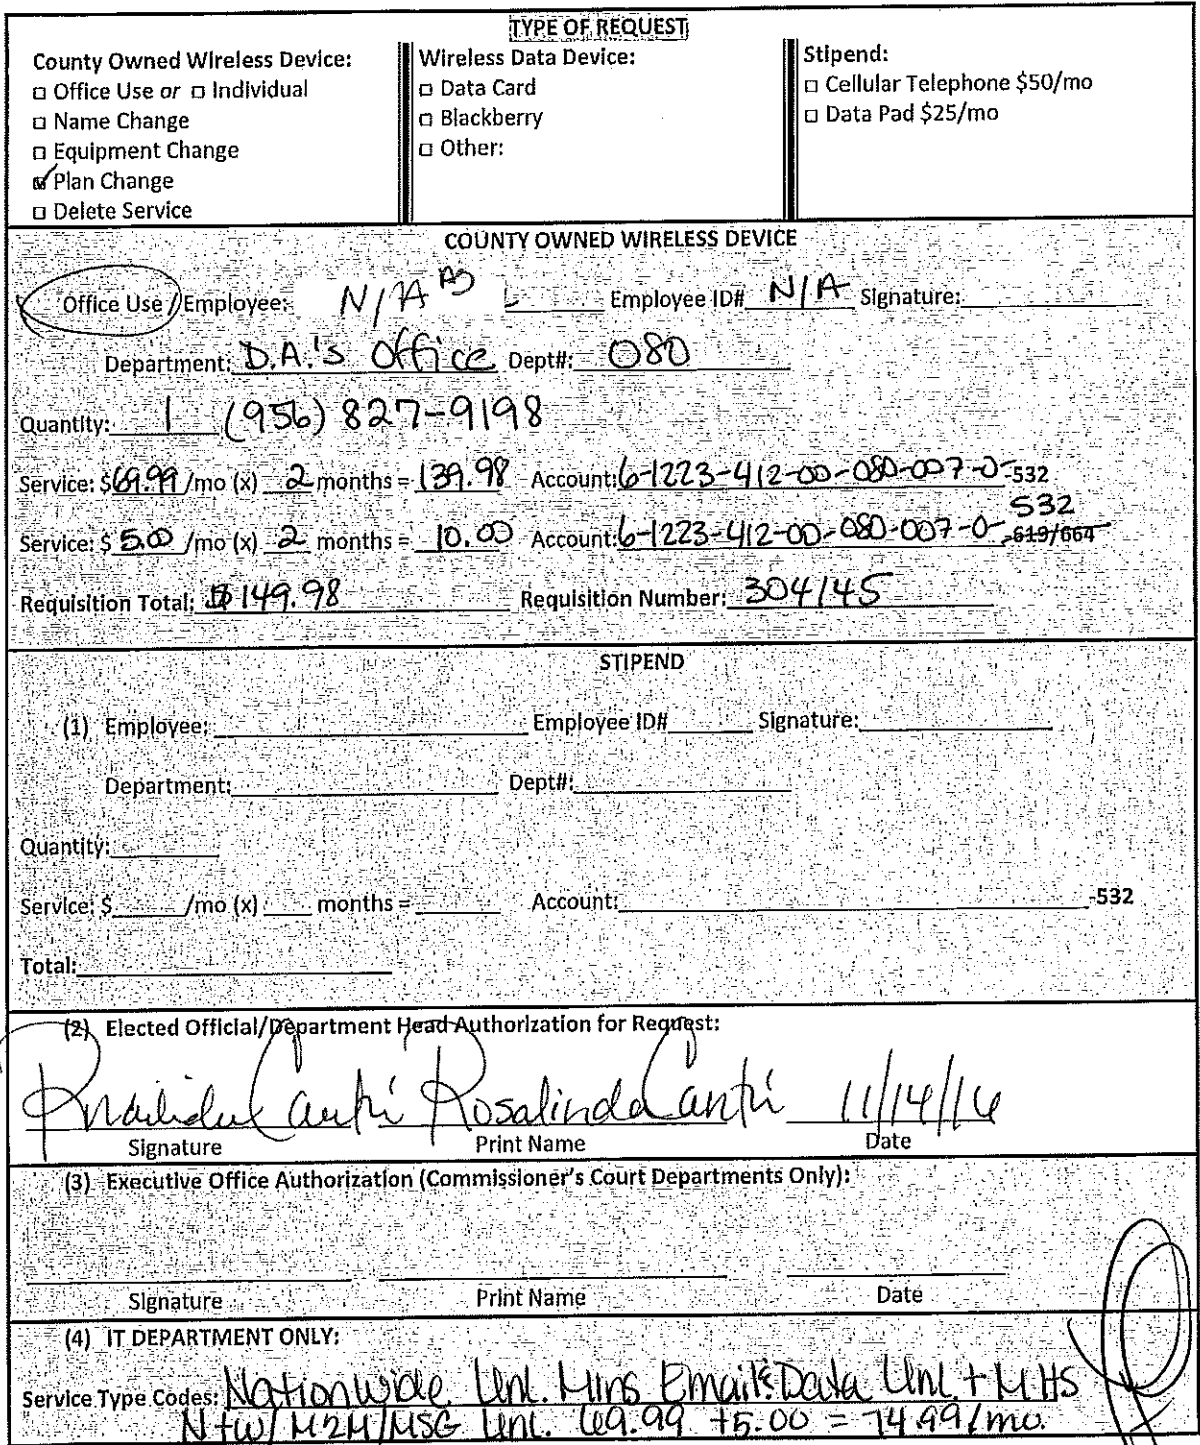 TYPE OF REQUEST
County Owned Wireless Device:
□ Office Use or □ Individual
□ Name Change
□ Equipment Change
☑ Plan Change
□ Delete Service
Wireless Data Device:
□ Data Card
□ Blackberry
□ Other:
Stipend:
□ Cellular Telephone $50/mo
□ Data Pad $25/mo
COUNTY OWNED WIRELESS DEVICE
Office Use / Employee: N/A Employee ID# N/A Signature:
Department: D.A.'s Office Dept#: 080
Quantity: 1 (956) 827-9198
Service: $69.99 /mo (x) 2 months = 139.98 Account: 6-1223-412-00-080-007-0-532
532
Service: $ 5.00 /mo (x) 2 months = 10.00 Account: 6-1223-412-00-080-007-0-619/664
Requisition Total: $149.98 Requisition Number: 304145
STIPEND
(1) Employee: Employee ID# Signature:
Department: Dept#:
Quantity:
Service: $ /mo (x) months = Account: -532
Total:
(2) Elected Official/Department Head Authorization for Request:
Rosalinda Cantú 11/14/16
Signature Print Name Date
(3) Executive Office Authorization (Commissioner's Court Departments Only):
Signature Print Name Date
(4) IT DEPARTMENT ONLY:
Service Type Codes: Nationwide Unl. Mins Email & Data Unl. + MHS
N+W/M2M/MSG Unl. 69.99 +5.00 = 74.99/mo.